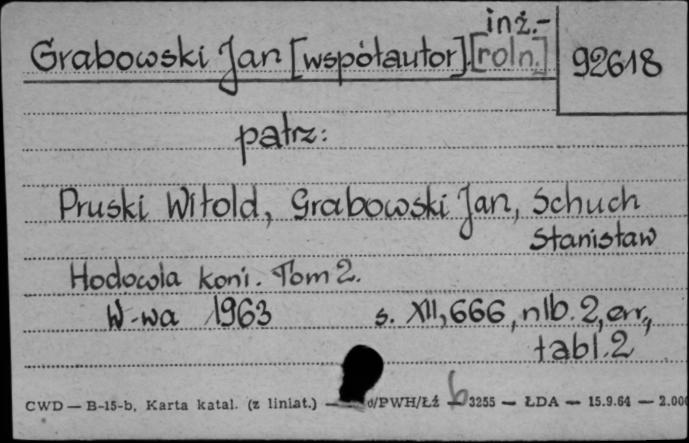 inż.-
Grabowski Jan [współautor].[roln.] 92618
patrz:
Pruski Witold, Grabowski Jan, Schuch
Stanisław
Hodowla koni. Tom 2.
W-wa 1963 s. XII, 666, nlb. 2, err.,
tabl. 2
CWD — B-15-b, Karta katal. (z liniat.) — d/PWH/Łź 3255 — ŁDA — 15.9.64 — 2.000